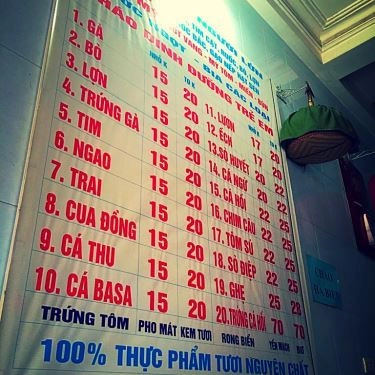 NGƯỜI LỚN
CHÁO DINH DƯỠNG TRẺ EM
BỊA CÁC LOẠI
1. GÀ 15 20
2. BÒ 15 20
3. LỢN 15 20
4. TRỨNG GÀ 15 20
5. TIM 15 20
6. NGAO 15 20
7. TRAI 15 20
8. CUA ĐỒNG 15 20
9. CÁ THU 15 20
10. CÁ BASA 15 20
11. LƯƠN 17 20
12. ẾCH 17 20
13. SÒ HUYẾT 20
14. CÁ NGỪ 20
15. CÁ HỒI 22
16. CHIM CÂU 22 25
17. TÔM SÚ 22 25
18. SÒ ĐIỆP 22 25
19. GHẸ 25
20. TRỨNG CÁ HỒI 70 70
TRỨNG TÔM PHO MÁT KEM TƯƠI RONG BIỂN YẾN MẠCH
100% THỰC PHẨM TƯƠI NGUYÊN CHẤT
CHÁO